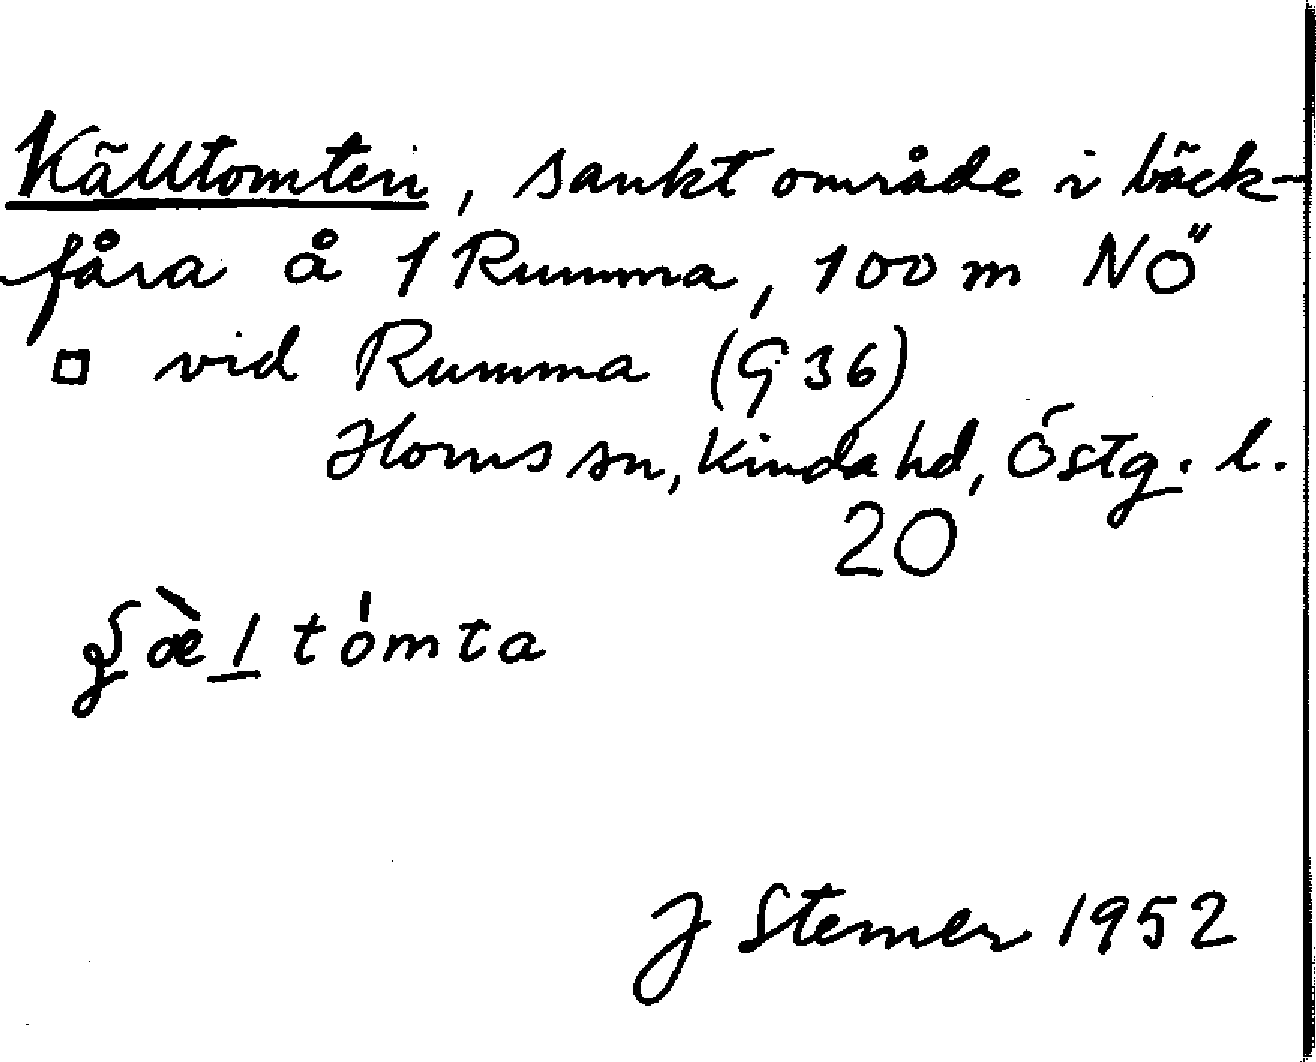 Källtomten, sankt område i bäck-
fåra å 1 Rumma, 100 m NÖ
□ vid Rumma (G 36)
Horns sn, Kinda hd, Östg. l.
20
tómta
J Sterner 1952